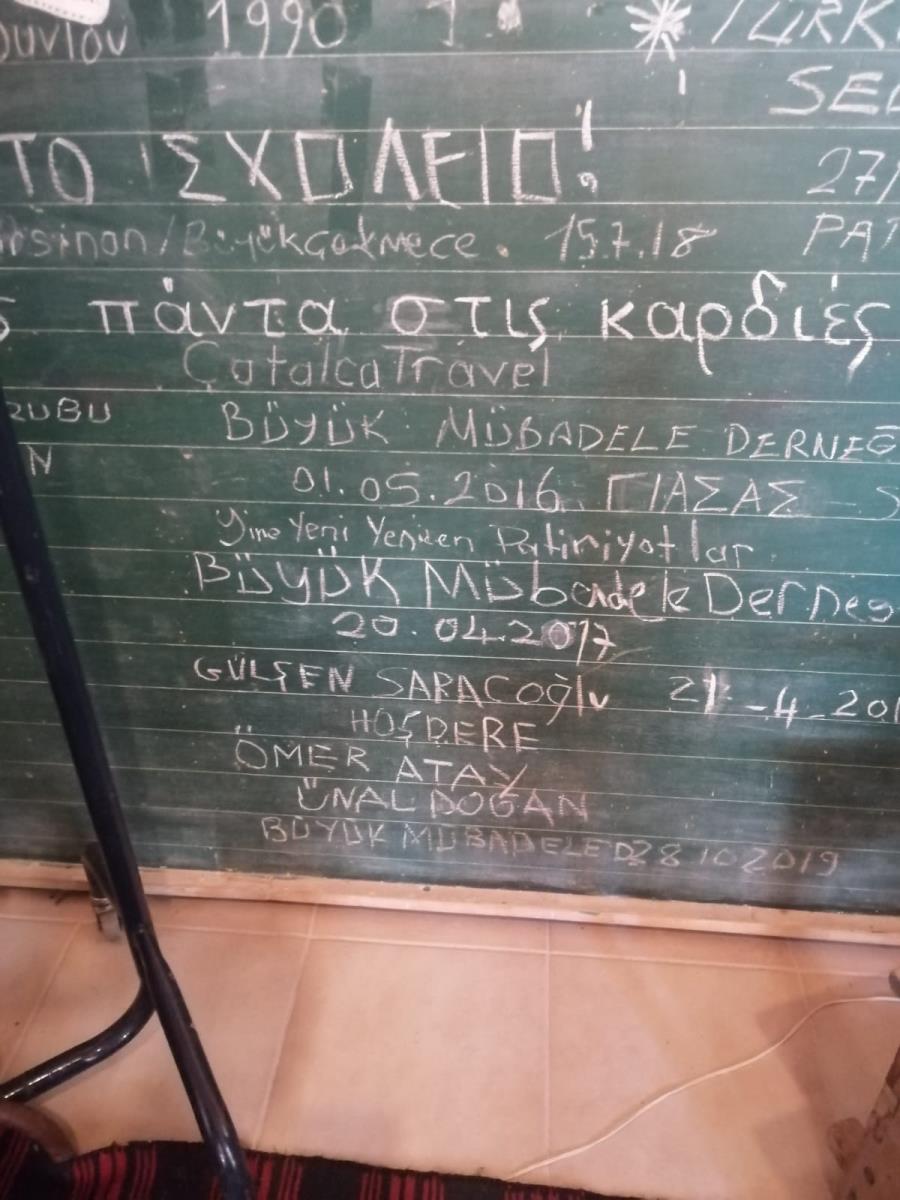 ουνίου 1990 * TÜRK
SEL
ΤΟ ΣΧΟΛΕΙΟ!
27/
/BüyükÇekmece 15.7.18 PAT
ς πάντα στις καρδιές
ÇatalcaTravel
RUBU BÜYÜK MÜBADELE DERNEĞ
N 01.05.2016 ΓΙΑΣΑΣ S
Yine Yeni Yeniden Patiriyotlar
BÜYÜK Mübadele Derneğ
20.04.2017
GÜLŞEN SARAÇOğlu 21-4-201
HOŞDERE
ÖMER ATAY
ÜNAL DOĞAN
BÜYÜK MÜBADELE D28 10 2019